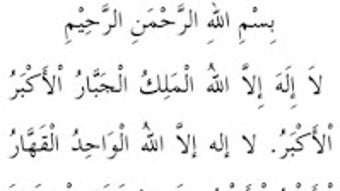 بِسْمِ اللهِ الرَّحْمَنِ الرَّحِيْمِ
لاَ إِلَهَ إِلاَّ اللهُ الْمَلِكُ الْجَبَّارُ اْلأَكْبَرُ
اْلأَكْبَرُ. لا إله إلاَّ اللهُ الْوَاحِدُ الْقَهَّارُ